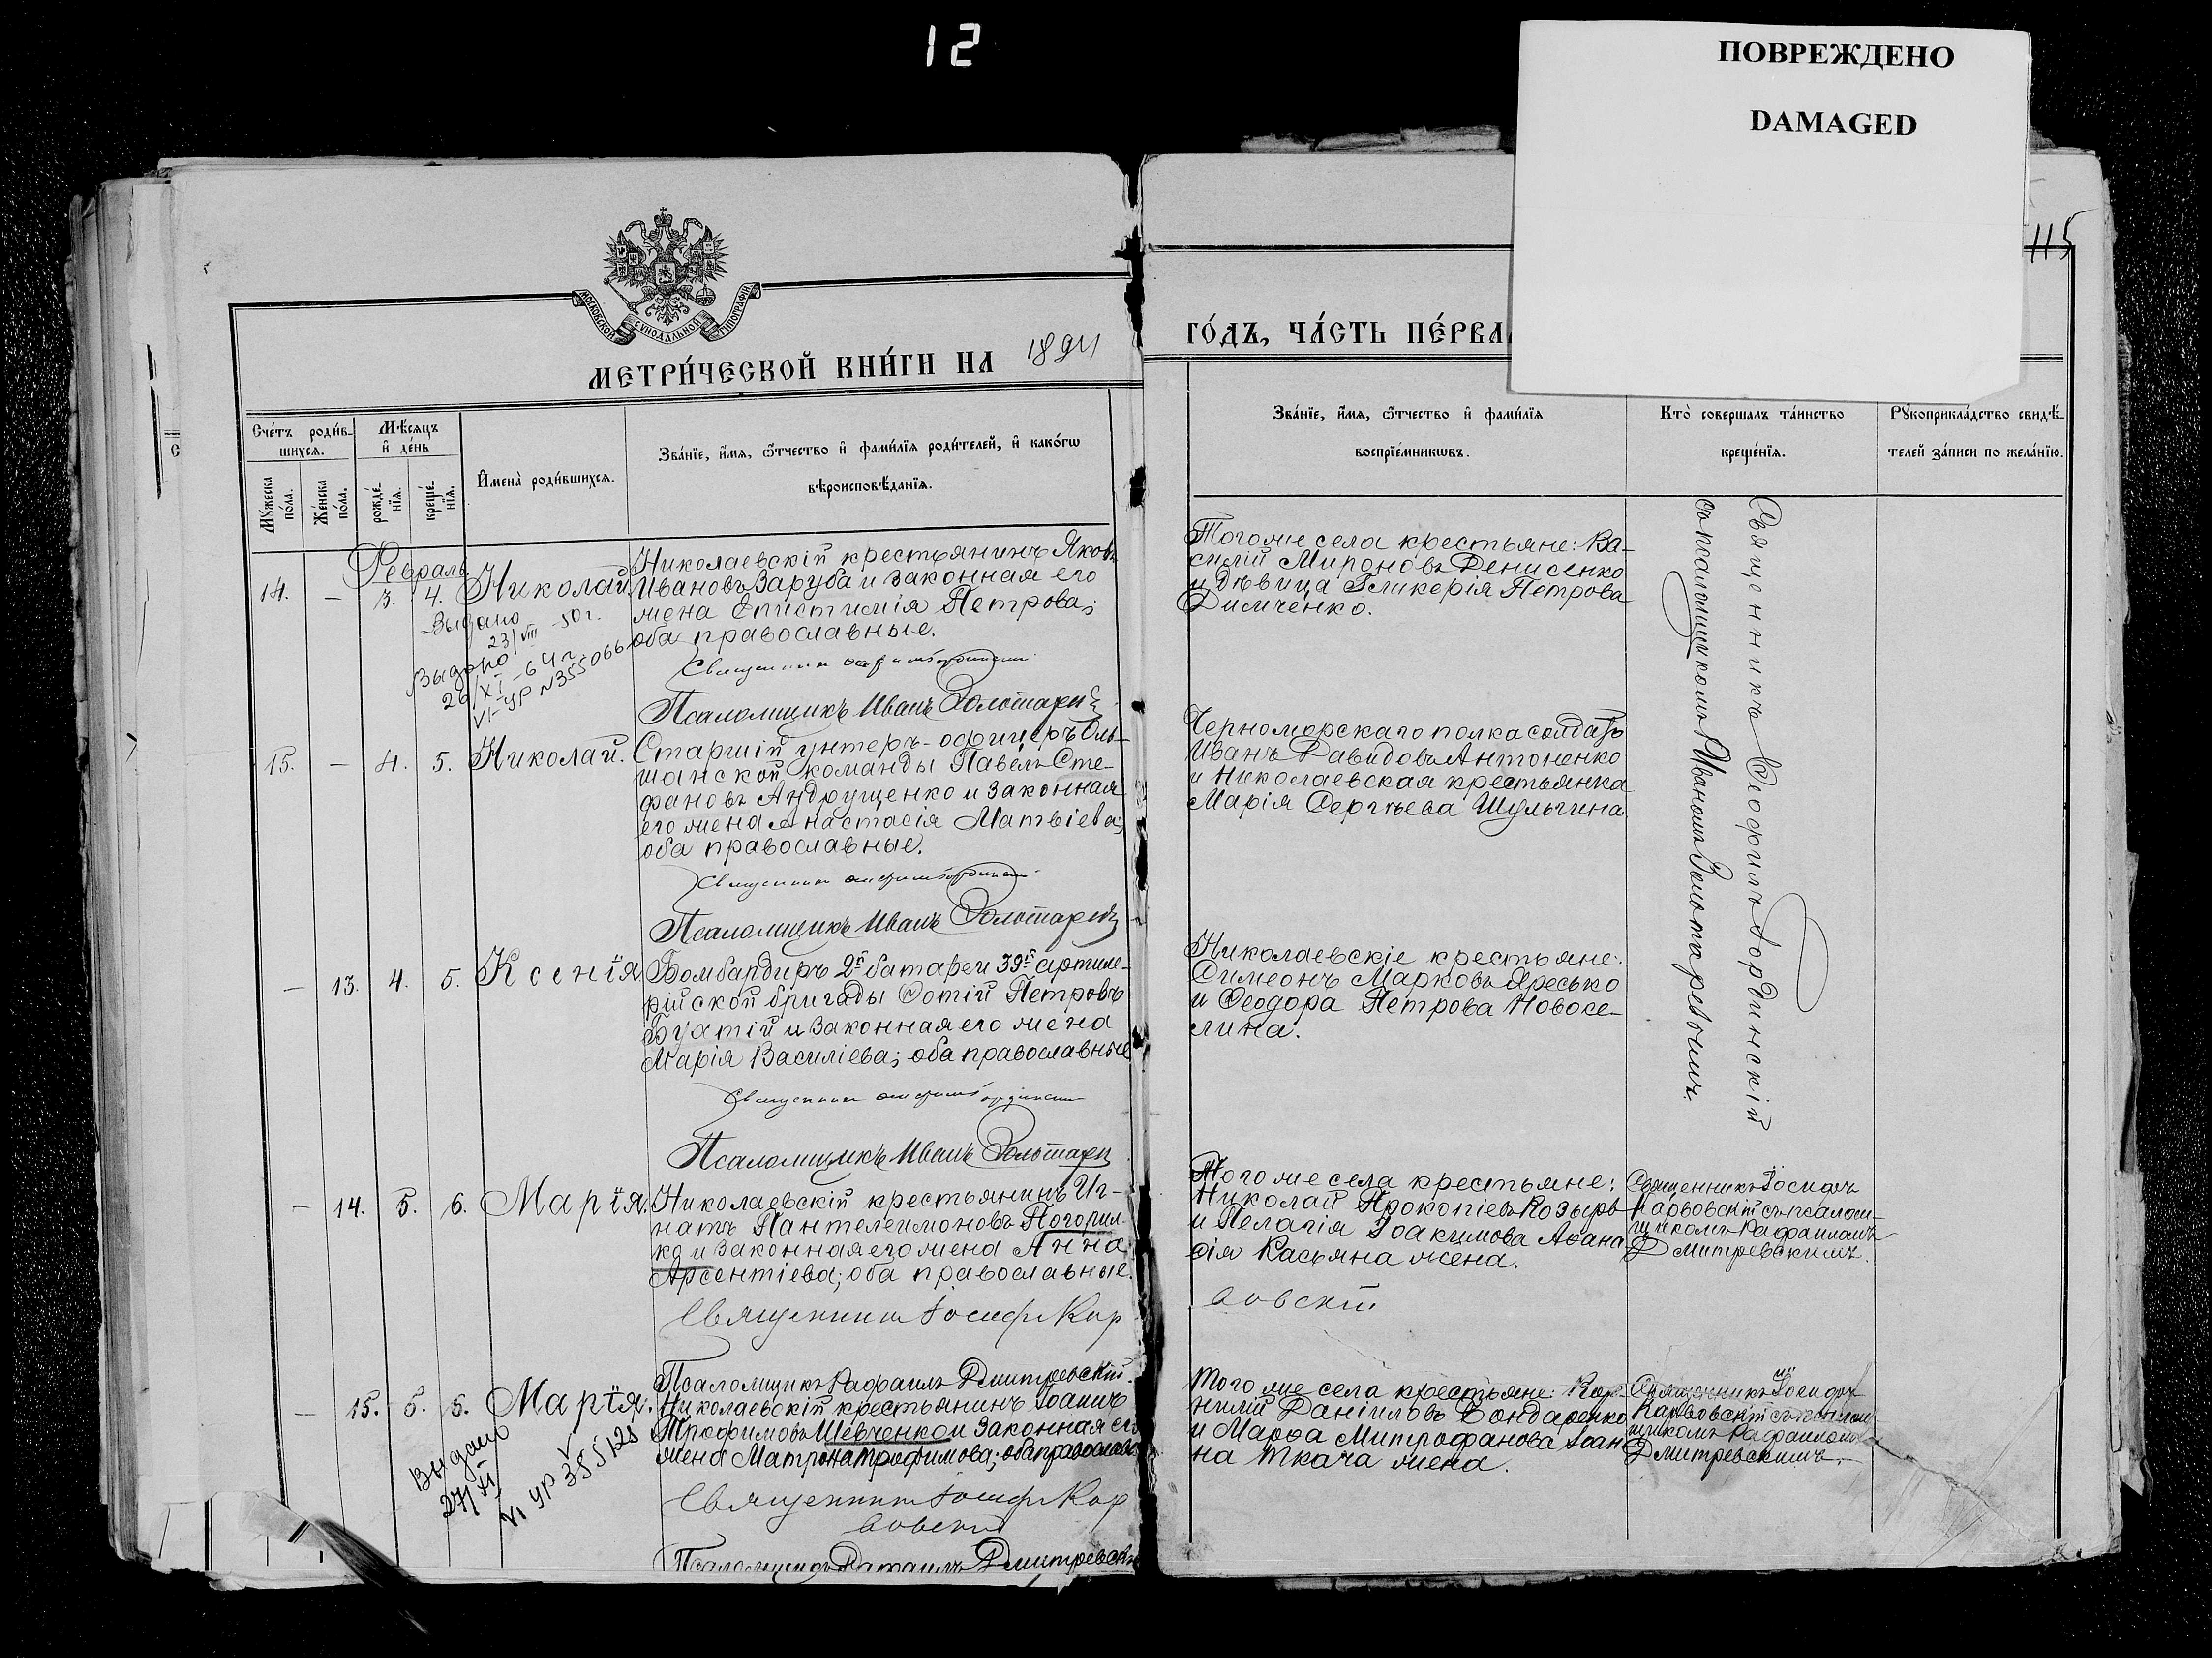 12
ПОВРЕЖДЕНО
DAMAGED
115
МОСКОВСКОЙ СѴНОДАЛЬНОЙ ТИПОГРАФІИ
МЕТРИ́ЧЕСКОЙ КНИ́ГИ НА 1894
ГО́ДЪ, ЧА́СТЬ ПЕ́РВА
Сче́тъ роди́в-
шихся.
Мѣ́сяцъ
и҆ де́нь
Мꙋ́жеска
по́ла.
Же́нска
по́ла.
рожде́-
нїя.
креще́-
нїя.
И҆мена̀ роди́вшихся.
Зва́нїе, и҆́мя, ѻ҆́тчество и҆ фами́лїя роди́телей, и҆ како́гѡ
вѣроисповѣ́данїя.
Зва́нїе, и҆́мя, ѻ҆́тчество и҆ фами́лїя
воспрїе́мникѡвъ.
Кто̀ соверша́лъ та́инство
креще́нїя.
Рꙋкоприкла́дство свидѣ́-
телей за́писи по жела́нїю.
Февраль
14. — 3. 4. Николай
Николаевскій крестьянинъ Яковъ
Ивановъ Заруба и законная его
жена Епистимія Петрова;
оба православные.
Выдано
23/VIII 50 г.
Выдано
26/XI -64 г.
VI-УР N355066
Псаломщикъ Иванъ Золотарев
Того же села крестьяне: Ва-
силій Мироновъ Денисенко
и девица Гликерія Петрова
Димченко.
Священникъ Ѳеофилъ Гординскій
съ псаломщикомъ Иваномъ Золотаревымъ.
15. — 4. 5. Николай.
Старшій унтеръ-офицеръ Оль-
шанской команды Павелъ Сте-
фановъ Андрущенко и законная
его жена Анастасія Матвіева;
оба православные.
Псаломщикъ Иванъ Золотарев
Черноморскаго полка солдатъ
Иванъ Давидовъ Антоненко
и Николаевская крестьянка
Марія Сергѣева Шульгина
— 13. 4. 5. Ксенія
Бомбардиръ 2й батареи 39й артиле-
рійской бригады Фотій Петровъ
и законная его жена
Марія Василіева; оба православные
Псаломщикъ Иванъ Золотарев
Николаевскіе крестьяне:
Симеонъ Марковъ Яресько
и Ѳеодора Петрова Новосе-
лина.
— 14. 5. 6. Марія.
Николаевскій крестьянинъ Иг-
натъ Пантелеимоновъ Погорил-
ко и законная его жена Анна
Арсентіева; оба православные.
Священникъ Іосифъ Кар
вовскій
Псаломщикъ Рафаилъ Дмитревскій.
Того же села крестьяне:
Николай Прокопіевъ Козырь
и Пелагія Іоакимова Аѳана
сія Касьяна жена.
Священникъ Іосифъ
Карвовскій съ псалом-
щикомъ Рафаиломъ
Дмитревскимъ.
— 15. 5. 6. Марія.
Николаевскій крестьянинъ Іоаннъ
Трофимовъ Шевченко и законная его
жена Матрона Трофимова; оба православн
Выдано
27/XI
VI УР 355128
Священникъ Іосифъ Кар
вовскій
Псаломщикъ Рафаилъ Дмитревскій
Того же села крестьяне: Кор-
нилій Даніиловъ Бондаренко
и Марѳа Митрофанова Іоан-
на Ткача жена.
Священникъ Іосифъ
Карвовскій съ псалом
щикомъ Рафаиломъ
Дмитревскимъ.